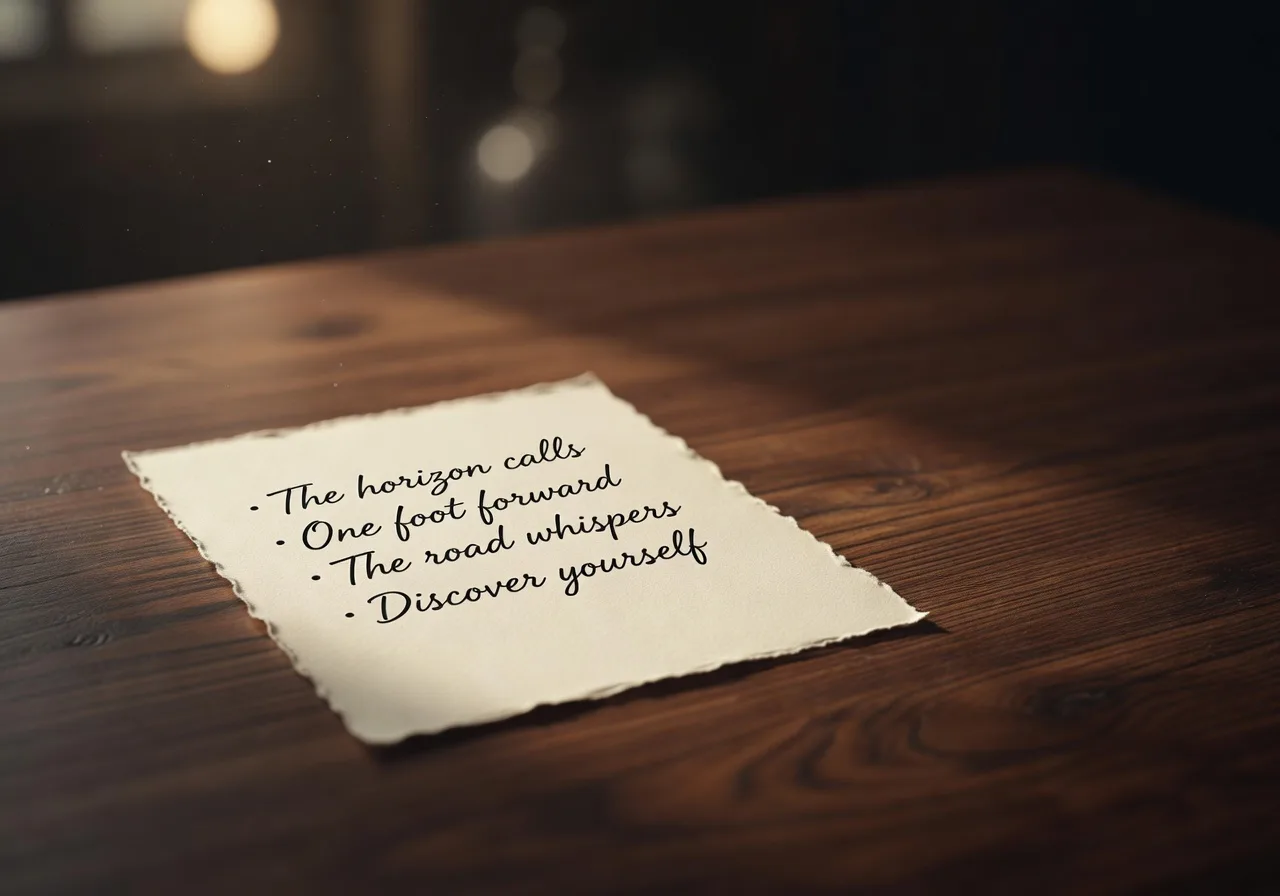 · The horizon calls
· One foot forward
· The road whispers
· Discover yourself